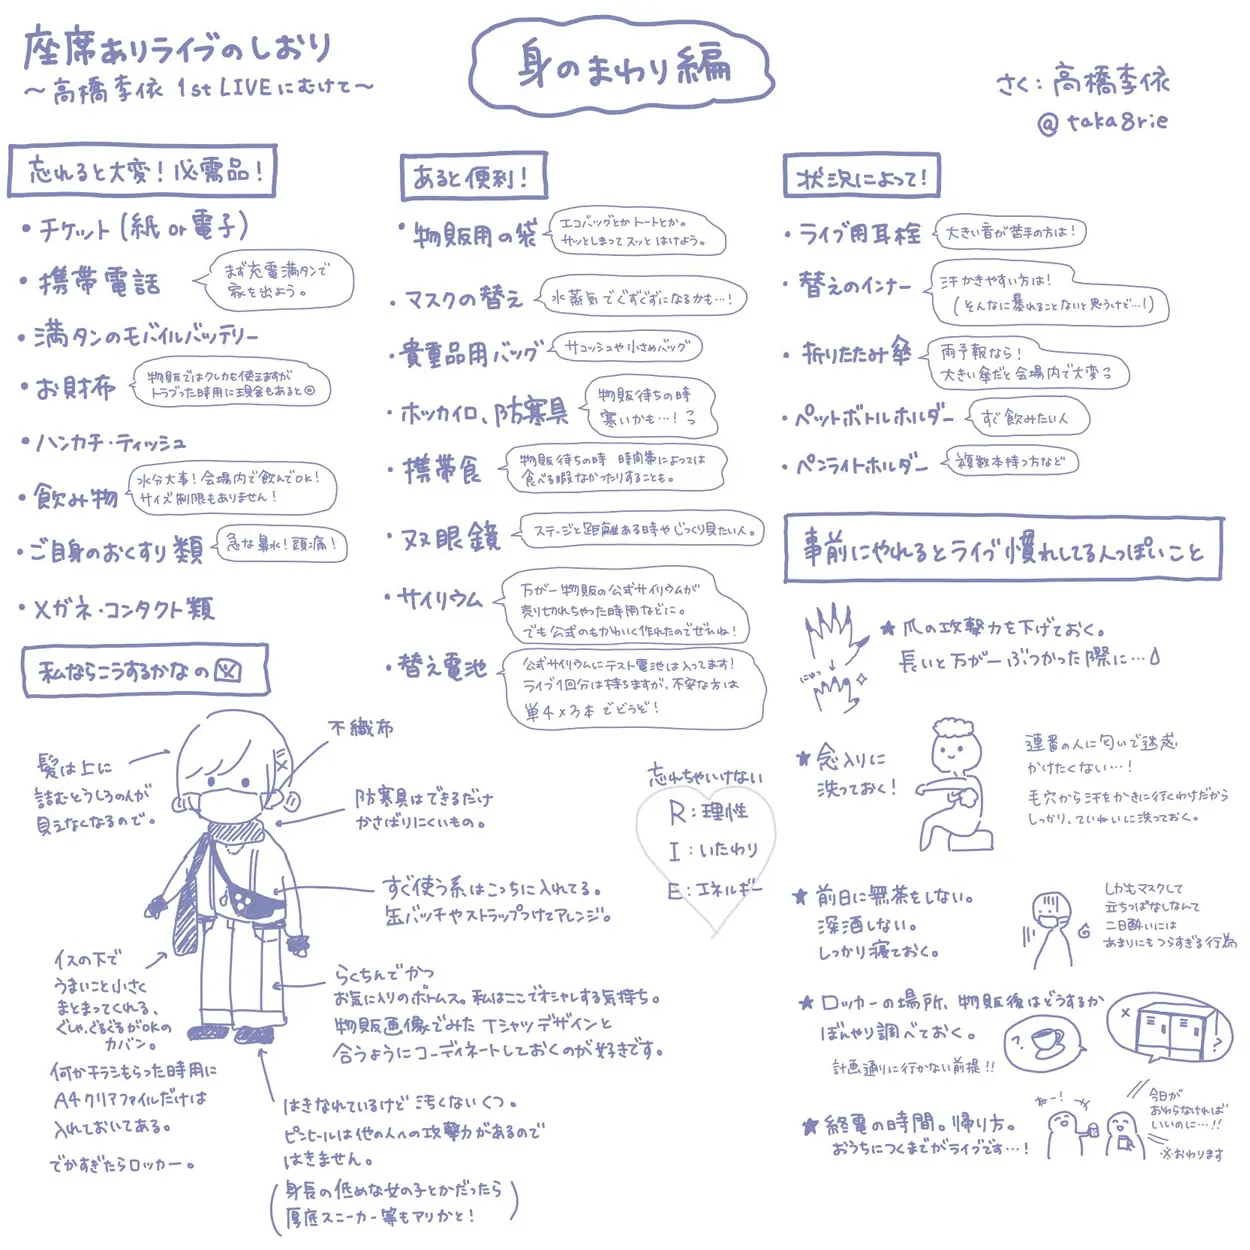 座席ありライブのしおり
～高橋李依 1st LIVEにむけて～
身のまわり編
さく：高橋李依
@taka8rie
忘れると大変！必需品！
・チケット(紙or電子)
・携帯電話
まず充電満タンで
家を出よう。
・満タンのモバイルバッテリー
・お財布
物販ではクレカも使えますが
トラブった時用に現金もあると◎
・ハンカチ・ティッシュ
・飲み物
水分大事！会場内で飲んでOK！
サイズ制限もありません！
・ご自身のおくすり類
急な鼻水！頭痛！
・メガネ・コンタクト類
あると便利！
・物販用の袋
エコバッグとかトートとか。
サッとしまってスッとはけよう。
・マスクの替え
水蒸気でぐずぐずになるかも…！
・貴重品用バッグ
サコッシュや小さめバッグ
・ホッカイロ、防寒具
物販待ちの時
寒いかも…！
・携帯食
物販待ちの時 時間帯によっては
食べる暇なかったりすることも。
・双眼鏡
ステージと距離ある時やじっくり見たい人。
・サイリウム
万が一物販の公式サイリウムが
売り切れちゃった時用などに。
でも公式のもかわいく作れたのでぜひね！
・替え電池
公式サイリウムにテスト電池は入ってます！
ライブ1回分は持ちますが、不安な方は
単4×3本でどうぞ！
状況によって！
・ライブ用耳栓
大きい音が苦手の方は！
・替えのインナー
汗かきやすい方は！
(そんなに暴れることないと思うけど…！)
・折りたたみ傘
雨予報なら！
大きい傘だと会場内で大変
・ペットボトルホルダー
すぐ飲みたい人
・ペンライトホルダー
複数本持つ方など
事前にやれるとライブ慣れしてる人っぽいこと
★爪の攻撃力を下げておく。
長いと万が一ぶつかった際に…
にゅっ
★念入りに
洗っておく！
連番の人に匂いで迷惑
かけたくない…！
毛穴から汗をかきに行くわけだから
しっかり、ていねいに洗っておく。
★前日に無茶をしない。
深酒しない。
しっかり寝ておく。
しかもマスクして
立ちっぱなしなんて
二日酔いには
あまりにもつらすぎる行為
★ロッカーの場所、物販後はどうするか
ぼんやり調べておく。
計画通りに行かない前提！！
?.
×
?
★終電の時間。帰り方。
おうちにつくまでがライブです…！
ねー！
今日が
おわらなければ
いいのに…！！
※おわります
私ならこうするかなの図
髪は上に
詰むとうしろの人が
見えなくなるので。
不織布
防寒具はできるだけ
かさばりにくいもの。
すぐ使う系はこっちに入れてる。
缶バッチやストラップつけてアレンジ。
イスの下で
うまいこと小さく
まとまってくれる、
ぐしゃ、ぐるぐるがOKの
カバン。
何かチラシもらった時用に
A4クリアファイルだけは
入れておいてある。
でかすぎたらロッカー。
らくちんでかつ
お気に入りのボトムス。私はここでオシャレする気持ち。
物販画像でみたTシャツデザインと
合うようにコーディネートしておくのが好きです。
はきなれているけど汚くないくつ。
ピンヒールは他の人への攻撃力があるので
はきません。
(身長の低めな女の子とかだったら
厚底スニーカー等もアリかと！)
忘れちゃいけない
R：理性
I：いたわり
E：エネルギー